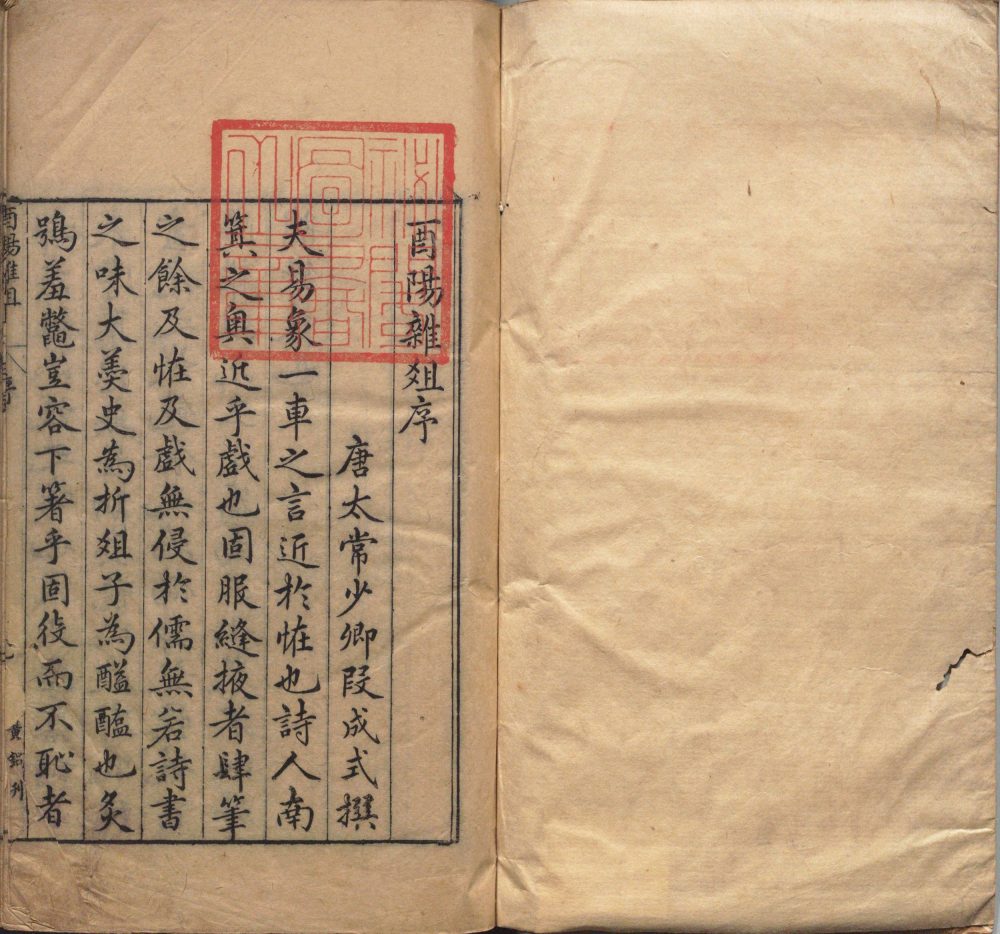 酉陽雜爼序
唐太常少卿段成式撰
夫易象一車之言近於恠也詩人南
箕之奥近乎戲也固服縫掖者肆筆
之餘及恠及戲無侵於儒無若詩書
之味大羮史為折爼子為醯醢也炙
鴞羞鼈豈容下箸乎固役而不恥者
酉陽雜爼
黄鋁刋